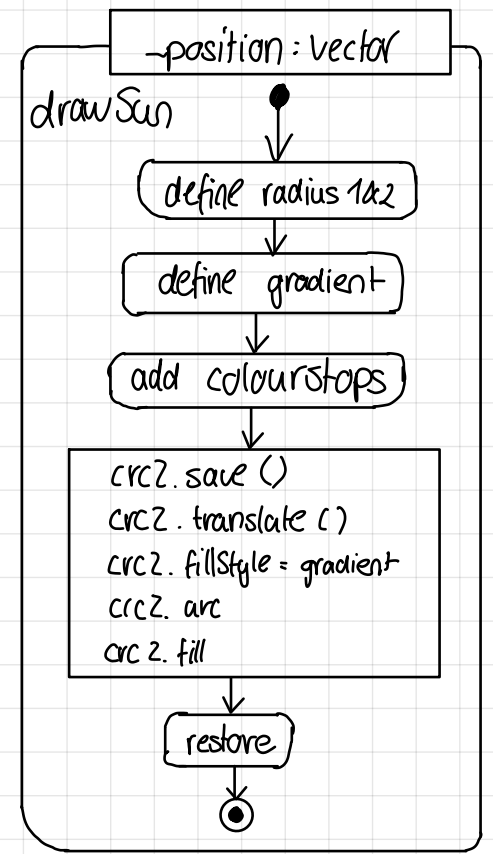 _position : vector
drawSun
define radius 1&2
define gradient
add colourstops
crc2.save ()
crc2.translate ()
crc2.fillStyle = gradient
crc2.arc
crc2.fill
restore